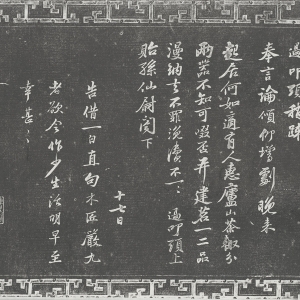 遘叩頭積踈
奉言論傾仰增劇晚來
起居何如適有人惠廬山茶輒分
兩器不知可啜否并建茗一二品
漫納去不罪浼瀆不一〻 遘叩頭上
貽孫仙尉閤下
十七日
告借一白直句木匠嚴九
者欲令作少生活明早至
幸甚〻